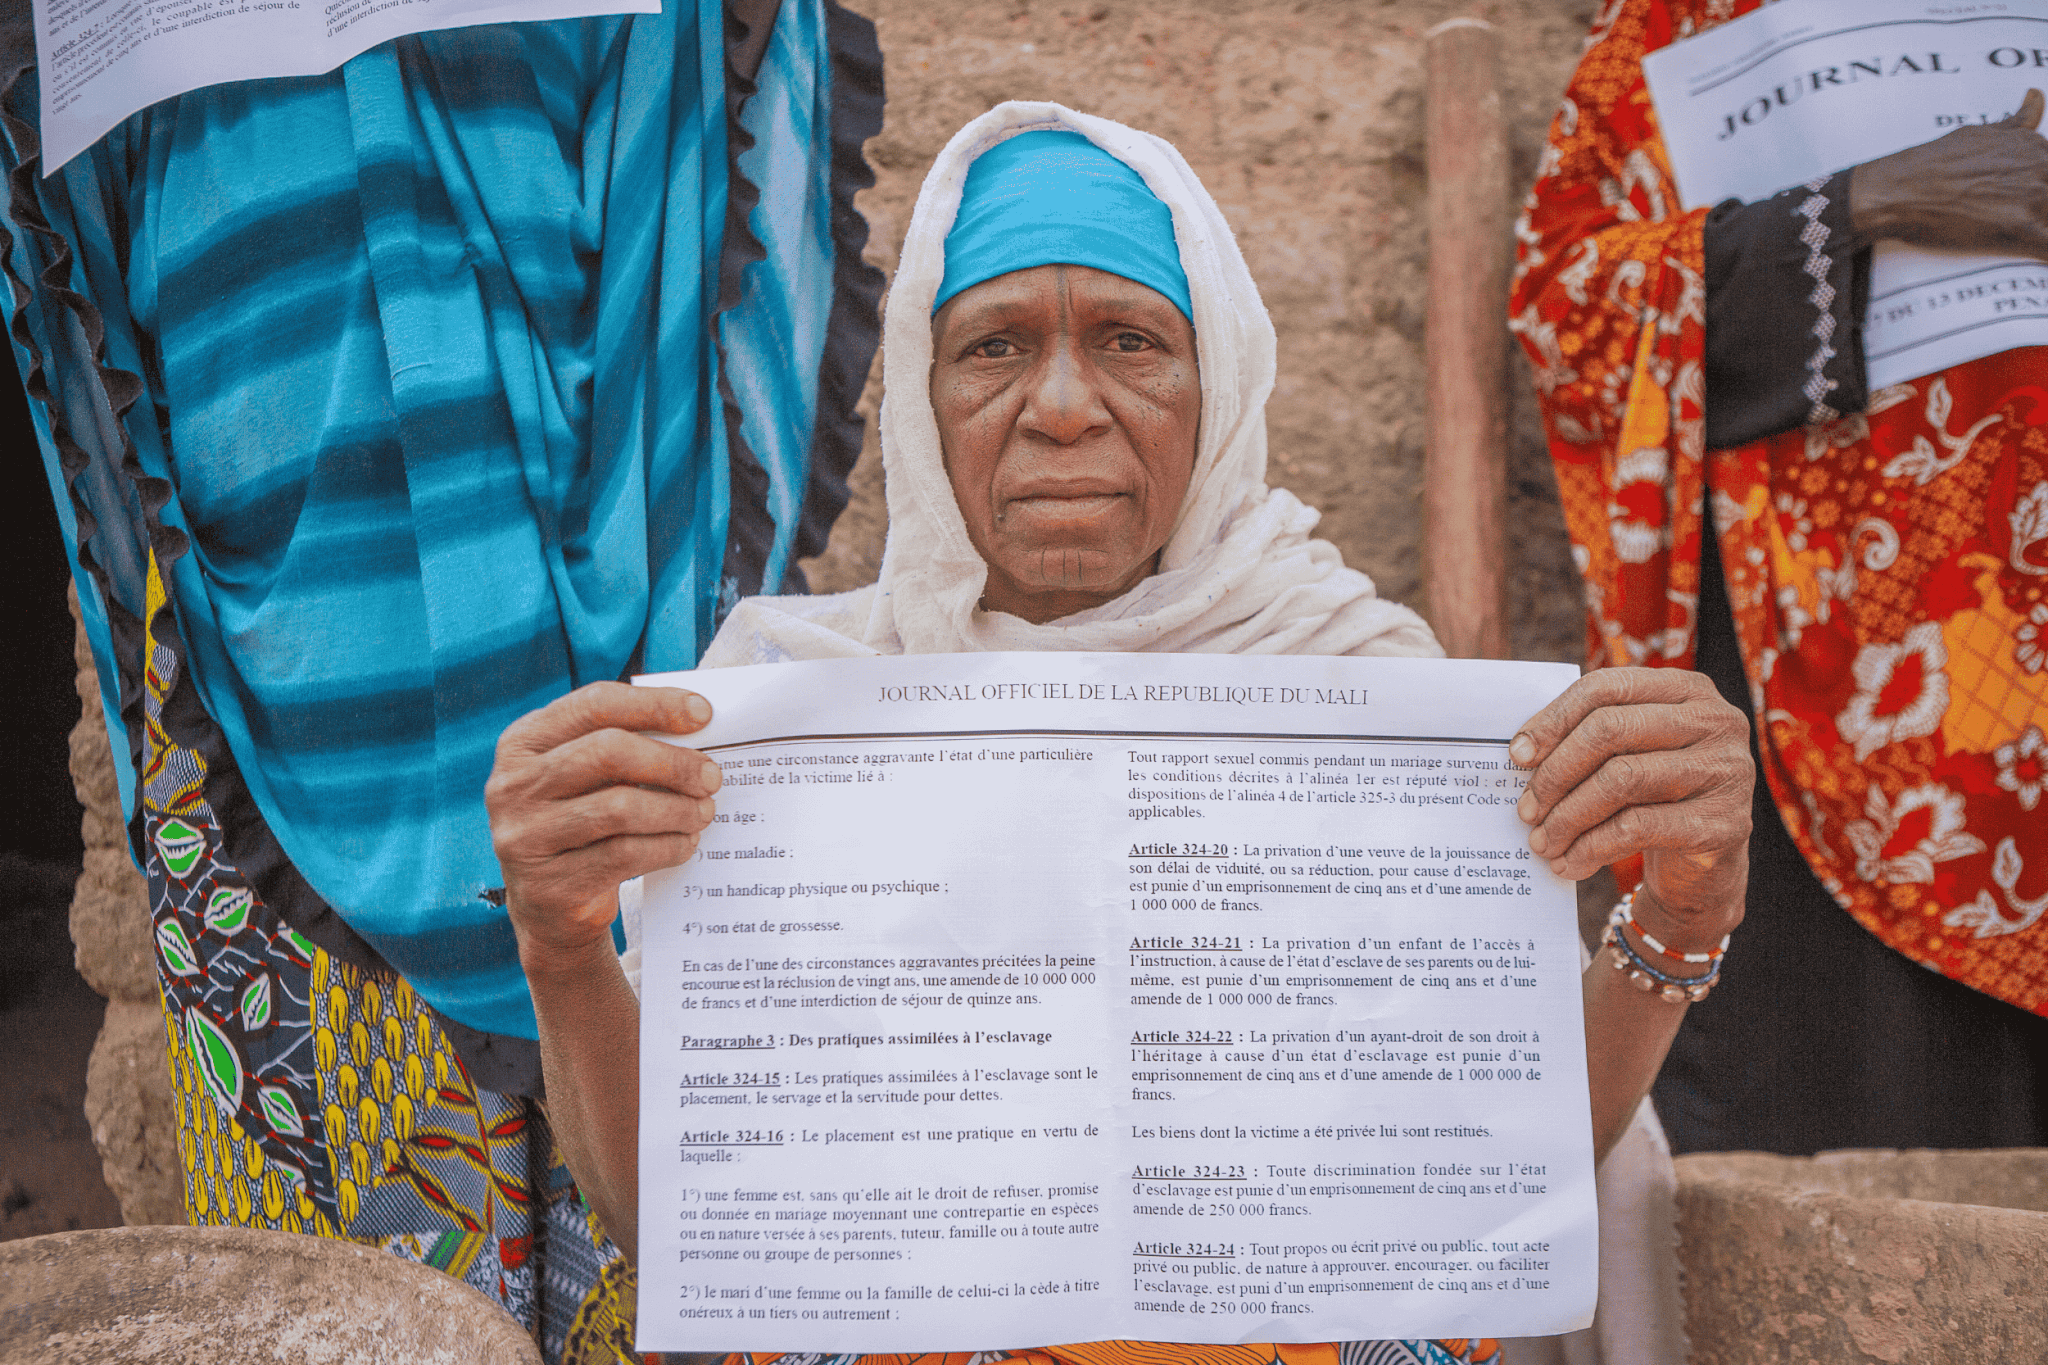 et de l'
Article 324-7 : Lorsque
l'article précédent est commis
ou s'il est commis en vue d'épouser
consentement de celle-ci, le coupable est
emprisonnement de cinq ans et d'une interdiction de séjour de
vingt ans.
réclusion de
d'une interdiction de
JOURNAL OF
DE LA
DU 13 DECEM
PENA
JOURNAL OFFICIEL DE LA REPUBLIQUE DU MALI
me une circonstance aggravante l'état d'une particulière
abilité de la victime lié à :
on âge ;
) une maladie ;
3°) un handicap physique ou psychique ;
4°) son état de grossesse.
En cas de l'une des circonstances aggravantes précitées la peine
encourue est la réclusion de vingt ans, une amende de 10 000 000
de francs et d'une interdiction de séjour de quinze ans.
Paragraphe 3 : Des pratiques assimilées à l'esclavage
Article 324-15 : Les pratiques assimilées à l'esclavage sont le
placement, le servage et la servitude pour dettes.
Article 324-16 : Le placement est une pratique en vertu de
laquelle :
1°) une femme est, sans qu'elle ait le droit de refuser, promise
ou donnée en mariage moyennant une contrepartie en espèces
ou en nature versée à ses parents, tuteur, famille ou à toute autre
personne ou groupe de personnes ;
2°) le mari d'une femme ou la famille de celui-ci la cède à titre
onéreux à un tiers ou autrement ;
Tout rapport sexuel commis pendant un mariage survenu dans
les conditions décrites à l'alinéa 1er est réputé viol ; et les
dispositions de l'alinéa 4 de l'article 325-3 du présent Code so
applicables.
Article 324-20 : La privation d'une veuve de la jouissance de
son délai de viduité, ou sa réduction, pour cause d'esclavage,
est punie d'un emprisonnement de cinq ans et d'une amende de
1 000 000 de francs.
Article 324-21 : La privation d'un enfant de l'accès à
l'instruction, à cause de l'état d'esclave de ses parents ou de lui-
même, est punie d'un emprisonnement de cinq ans et d'une
amende de 1 000 000 de francs.
Article 324-22 : La privation d'un ayant-droit de son droit à
l'héritage à cause d'un état d'esclavage est punie d'un
emprisonnement de cinq ans et d'une amende de 1 000 000 de
francs.
Les biens dont la victime a été privée lui sont restitués.
Article 324-23 : Toute discrimination fondée sur l'état
d'esclavage est punie d'un emprisonnement de cinq ans et d'une
amende de 250 000 francs.
Article 324-24 : Tout propos ou écrit privé ou public, tout acte
privé ou public, de nature à approuver, encourager, ou faciliter
l'esclavage, est puni d'un emprisonnement de cinq ans et d'une
amende de 250 000 francs.